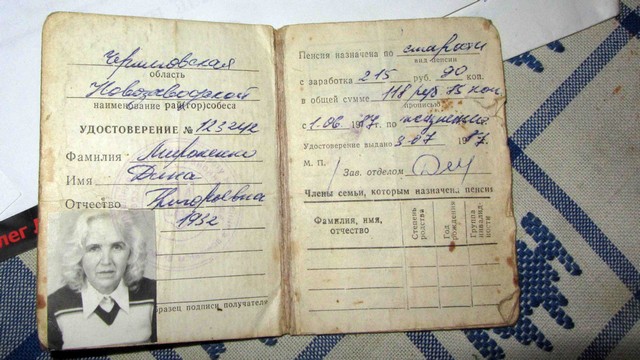 Черниговская
область
Новозаводской
наименование рай(гор)собеса
УДОСТОВЕРЕНИЕ № 123242
Фамилия Мироненко
Имя Дина
Отчество Григорьевна
1932
образец подписи получателя
Пенсия назначена по старости
вид пенсии
с заработка 215 руб. 90 коп.
в общей сумме 118 руб 75 коп
прописью
с 1.06. 1987г. по пожизненно
Удостоверение выдано 3.07 1987г.
М. П.
Зав. отделом
Члены семьи, которым назначена пенсия
Фамилия, имя, отчество
Степень родства
Год рождения
Группа инвалидности
лег Л